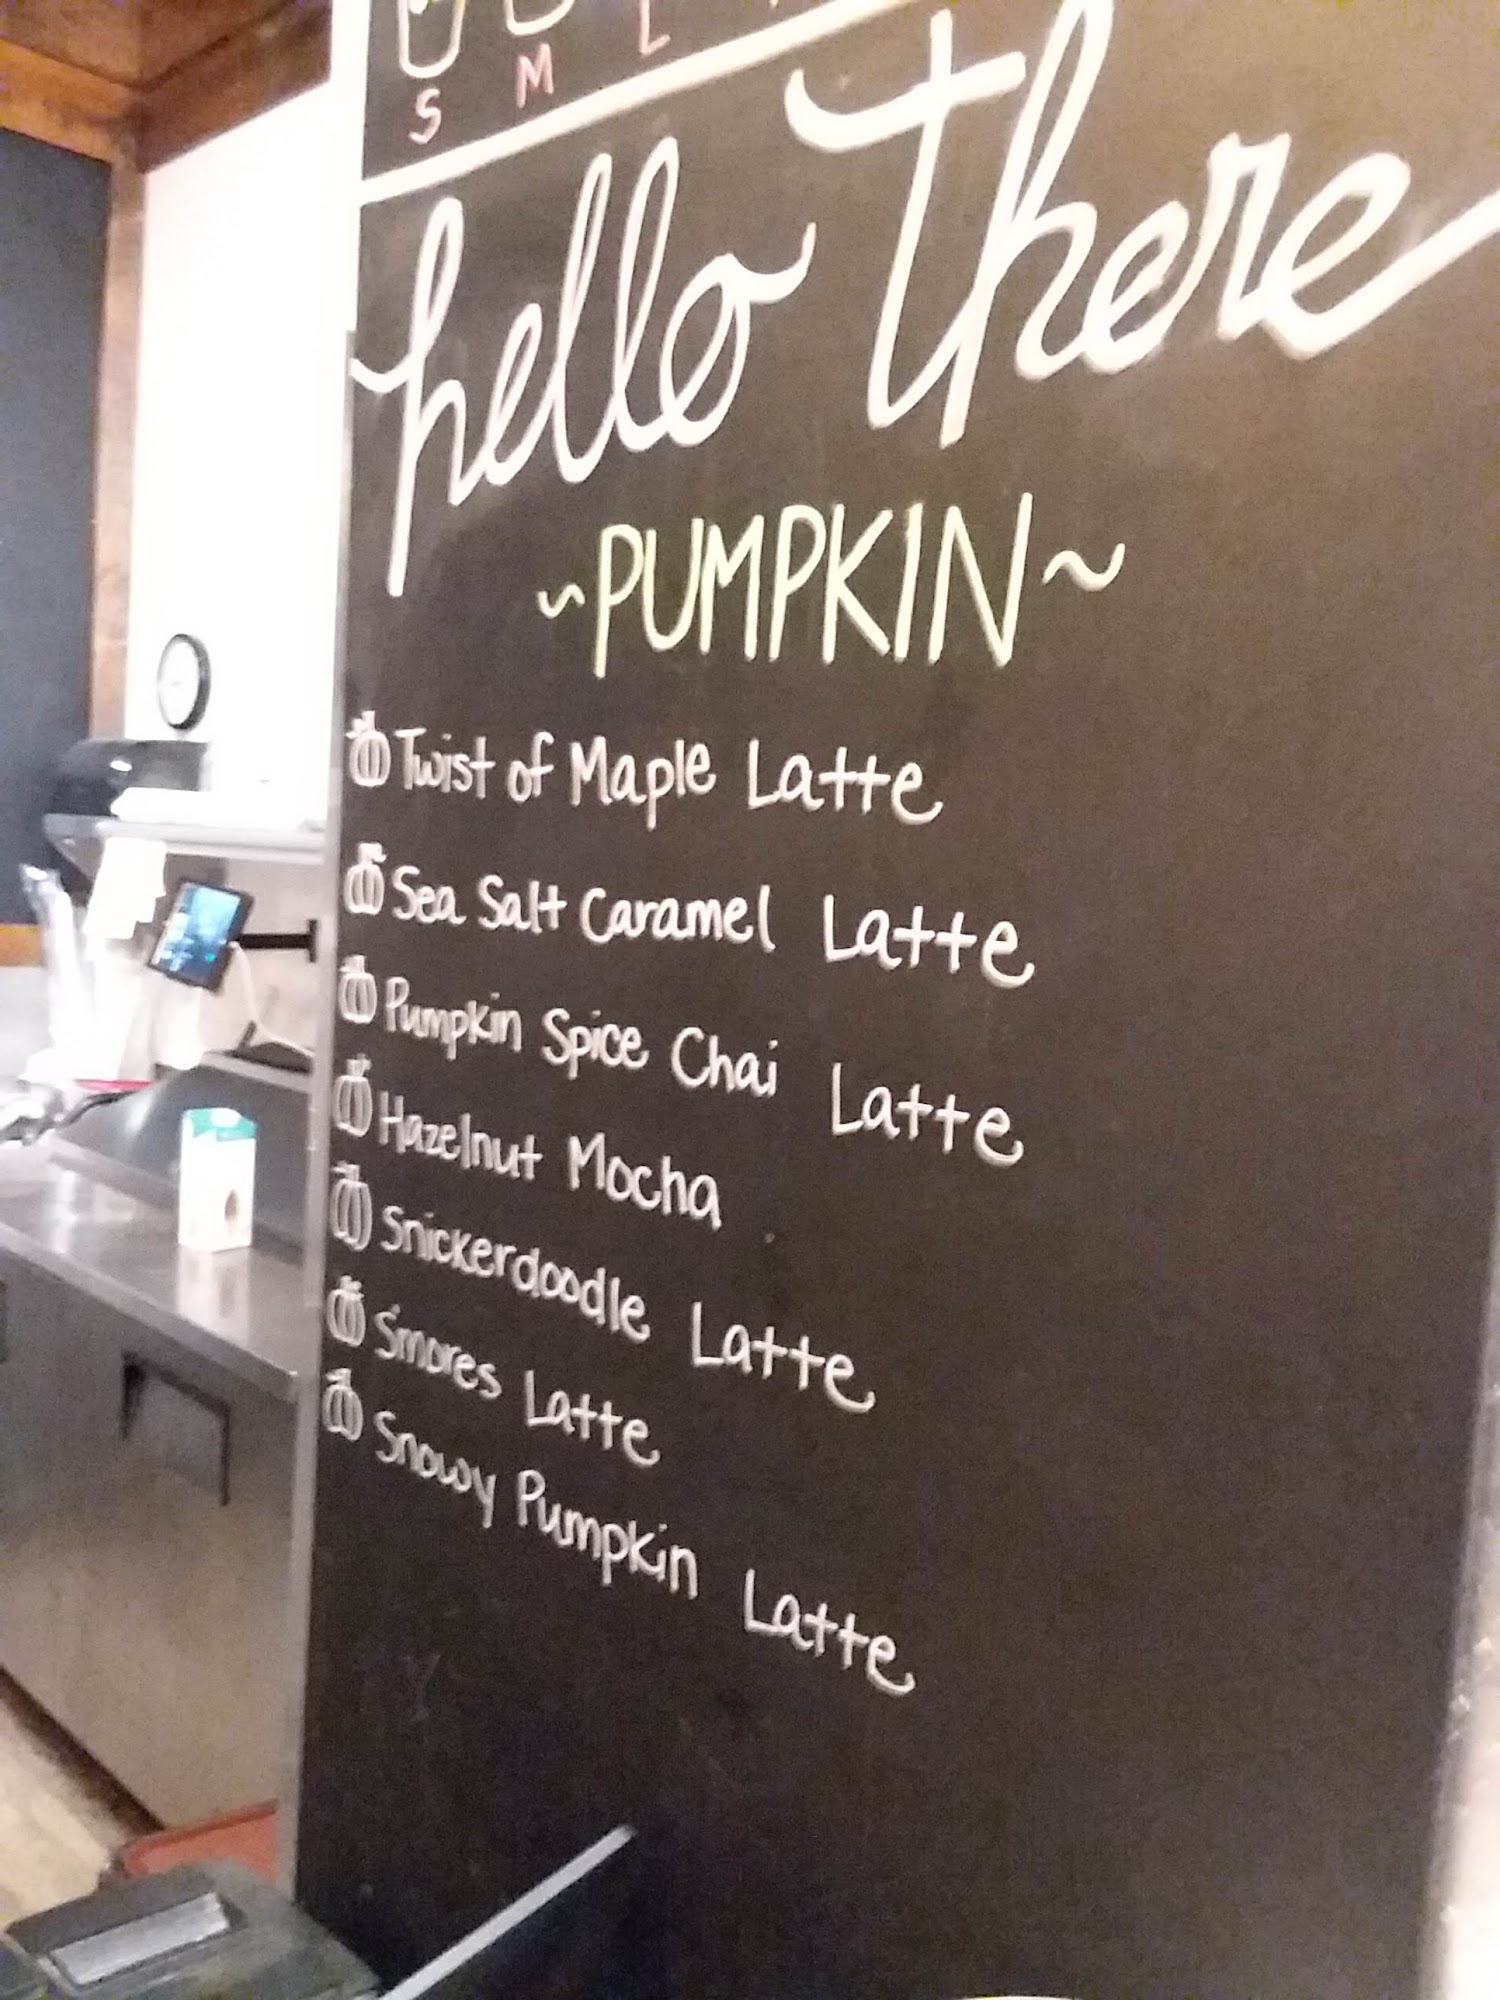 S M L
hello There
~PUMPKIN~
Twist of Maple Latte
Sea Salt Caramel Latte
Pumpkin Spice Chai Latte
Hazelnut Mocha
Snickerdoodle Latte
S'mores Latte
Snowy Pumpkin Latte